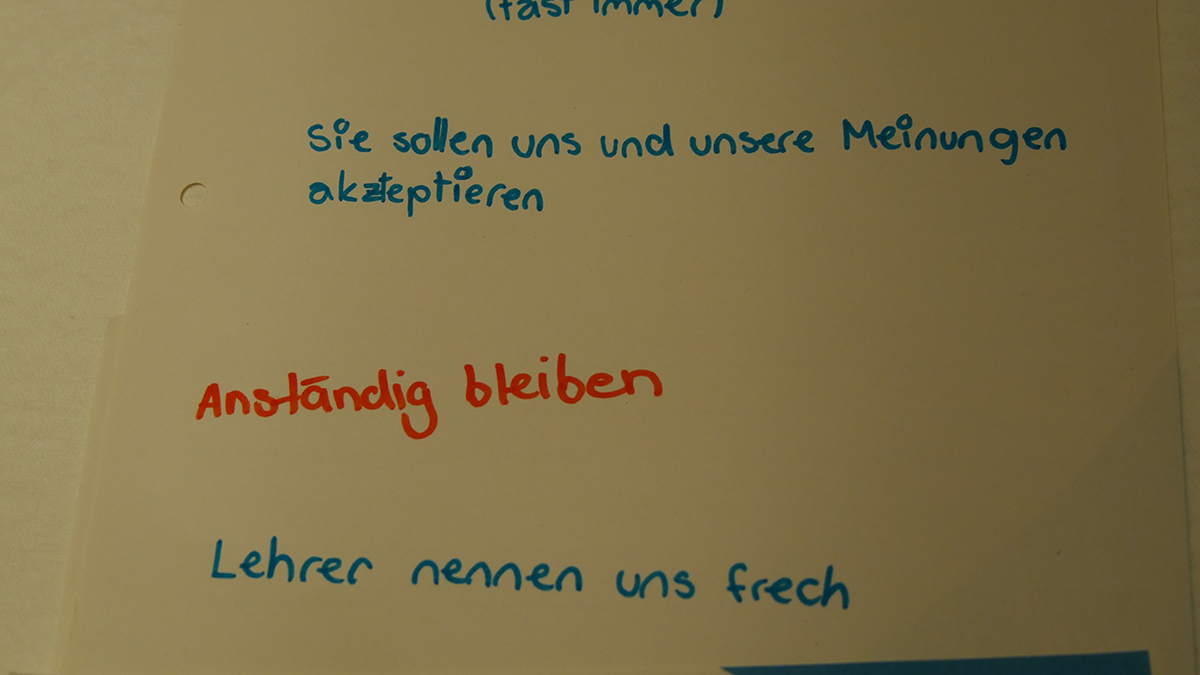 (fast immer)
Sie sollen uns und unsere Meinungen
akzteptieren
Anständig bleiben
Lehrer nennen uns frech